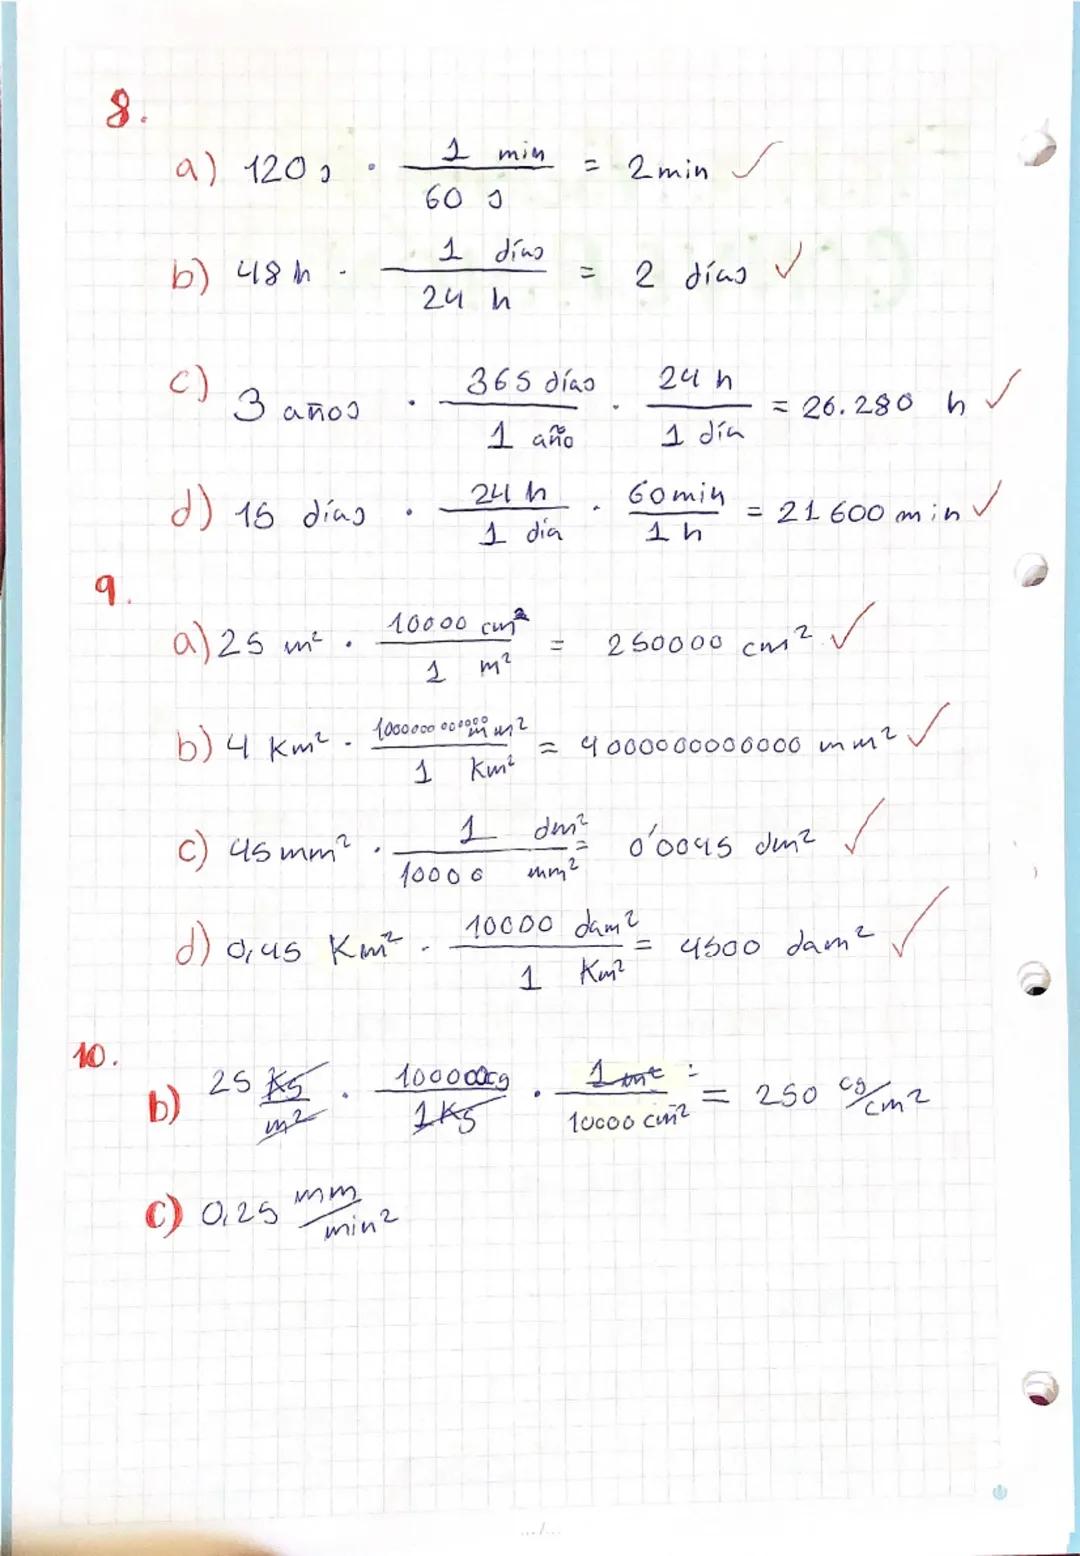 8.
a) 120 s · 1 min / 60 s = 2 min ✓
b) 48 h · 1 días / 24 h = 2 días ✓
c) 3 años · 365 días / 1 año · 24 h / 1 día = 26.280 h ✓
d) 15 días · 24 h / 1 día · 60 min / 1 h = 21600 min ✓
9.
a) 25 m² · 10000 cm² / 1 m² = 250000 cm² ✓
b) 4 Km² · 1000000000000 mm² / 1 Km² = 4000000000000 mm² ✓
c) 45 mm² · 1 dm² / 10000 mm² = 0'0045 dm² ✓
d) 0,45 Km² · 10000 dam² / 1 Km² = 4500 dam² ✓
10.
b) 25 Kg/m² · 100000cg / 1Kg · 1 m² / 10000 cm² = 250 cg/cm²
c) 0,25 mm/min²